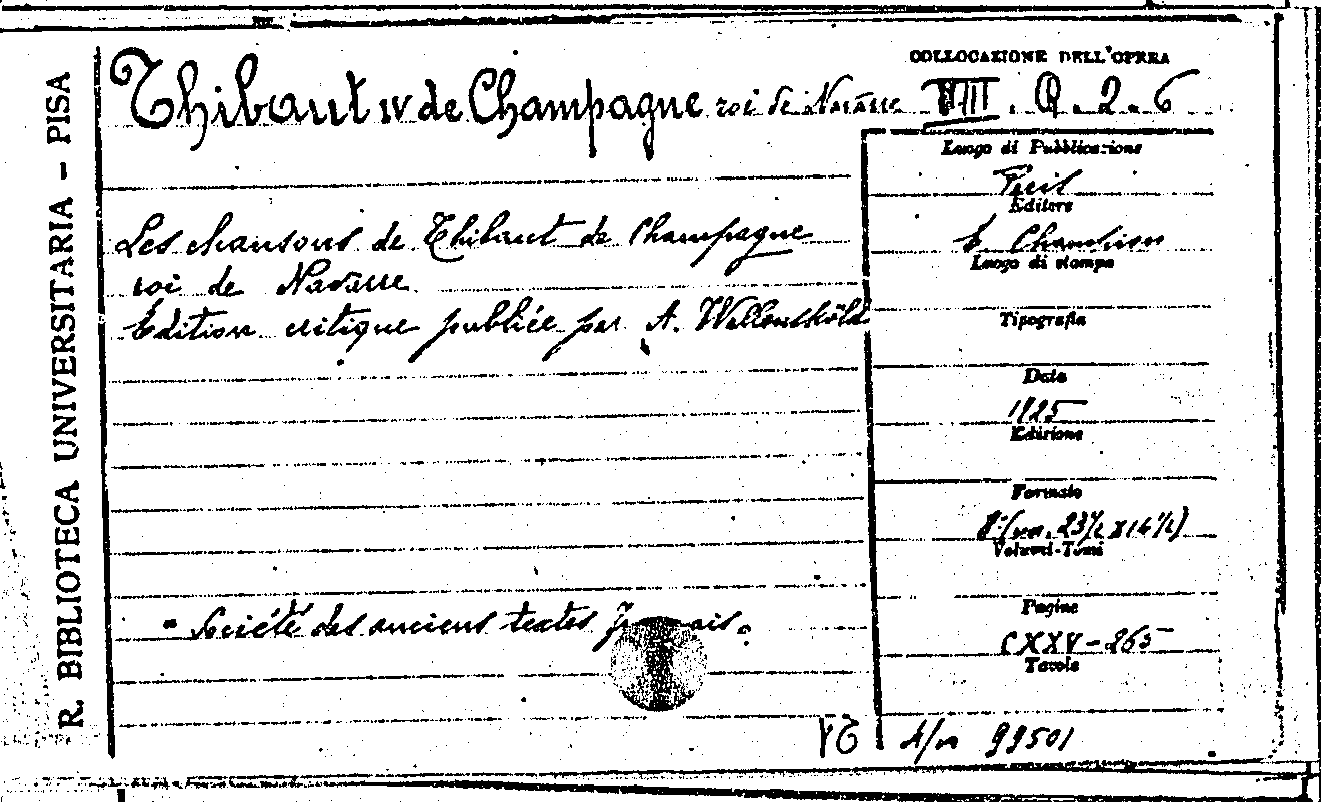 R. BIBLIOTECA UNIVERSITARIA - PISA
COLLOCAZIONE DELL'OPERA
Thibaut IV de Champagne roi de Navarre VIII. Q. 2. 6
Luogo di Pubblicazione
Les chansons de Thibaut de Champagne
roi de Navarre
Édition critique publiée par A. Wallensköld
Editore
E Champion
Luogo di stampa
Tipografia
Data
1925
Edizione
Formato
8° 23½ x 14½)
Volumi-Tomi
Pagine
CXXV-265
Tavole
" Société des anciens textes
99501